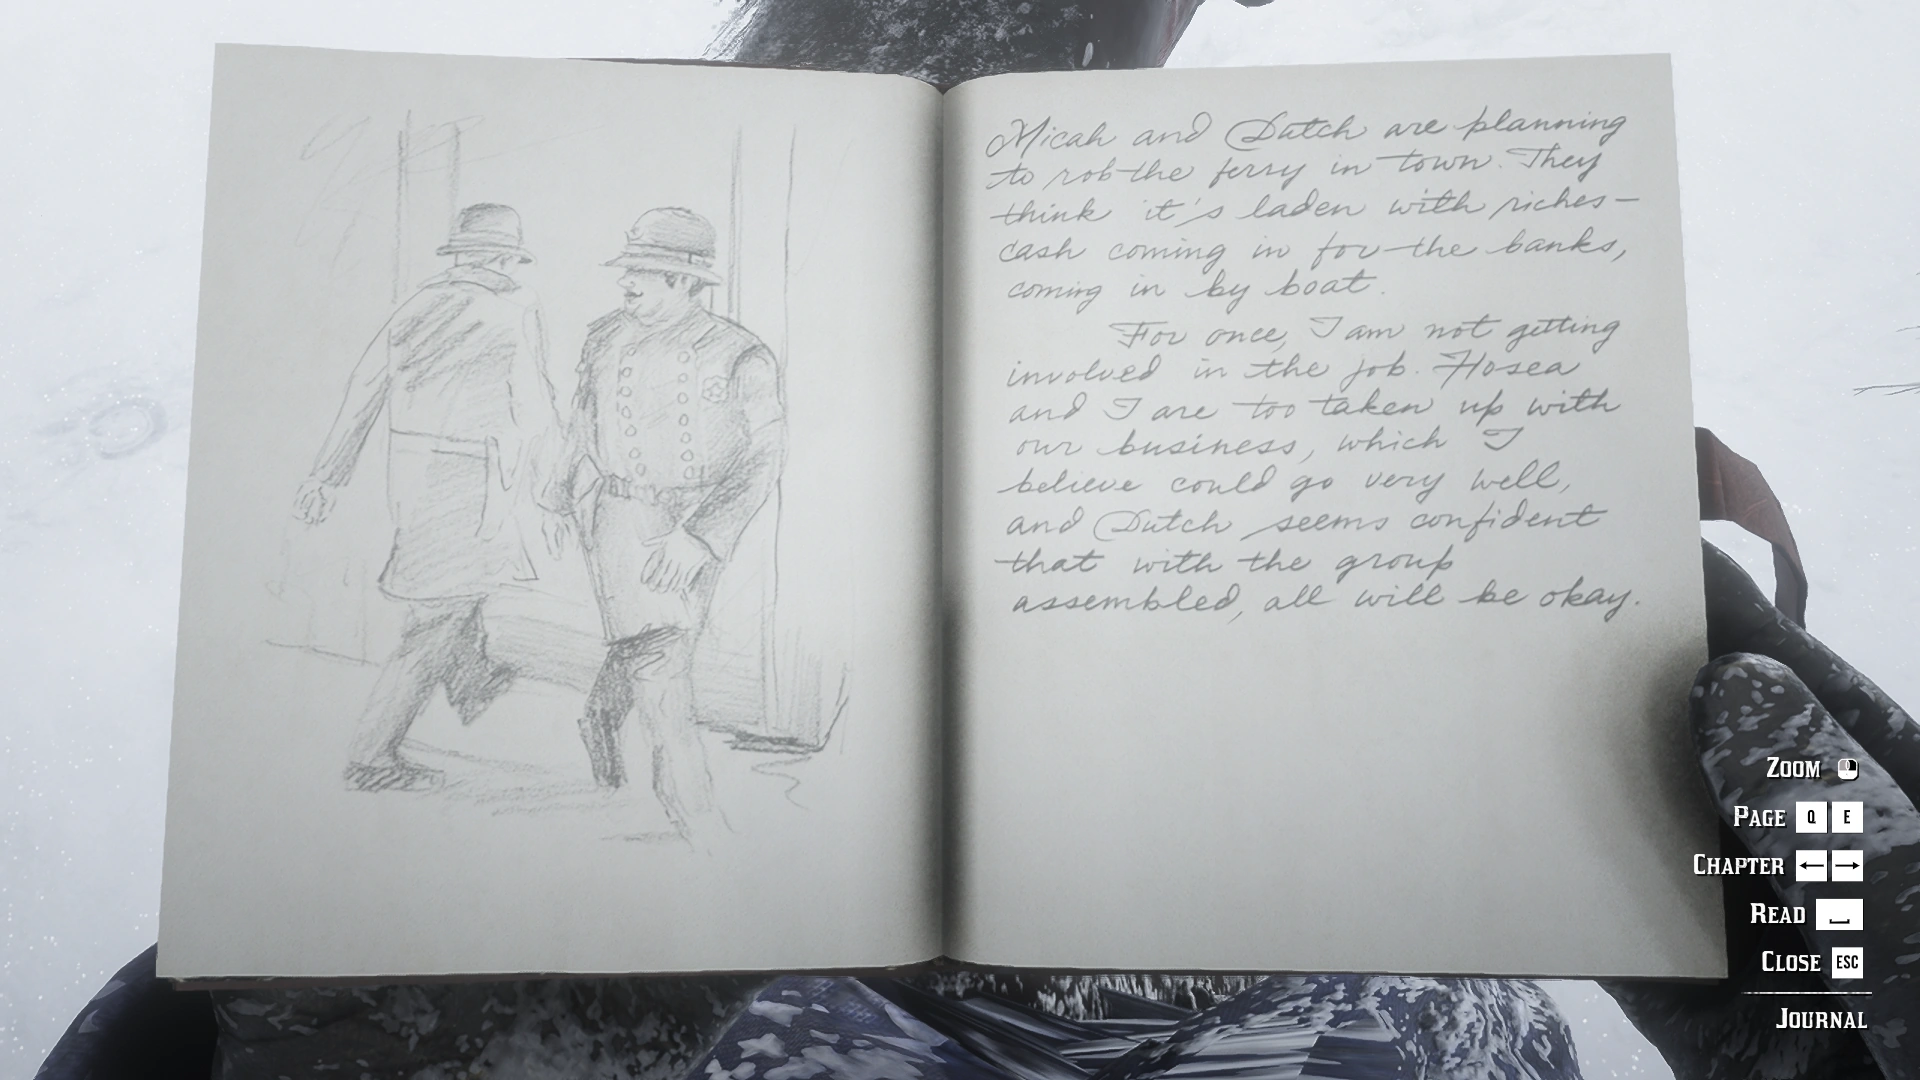 Micah and Dutch are planning
to rob the ferry in town. They
think it's laden with riches—
cash coming in for the banks,
coming in by boat.
For once, I am not getting
involved in the job. Hosea
and I are too taken up with
our business, which I
believe could go very well,
and Dutch seems confident
that with the group
assembled, all will be okay.
ZOOM
PAGE Q E
CHAPTER ← →
READ
CLOSE ESC
JOURNAL